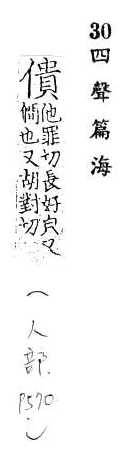 30 四聲篇海
僓
他罪切長好皃又
僩也又胡對切
(人部 P570)